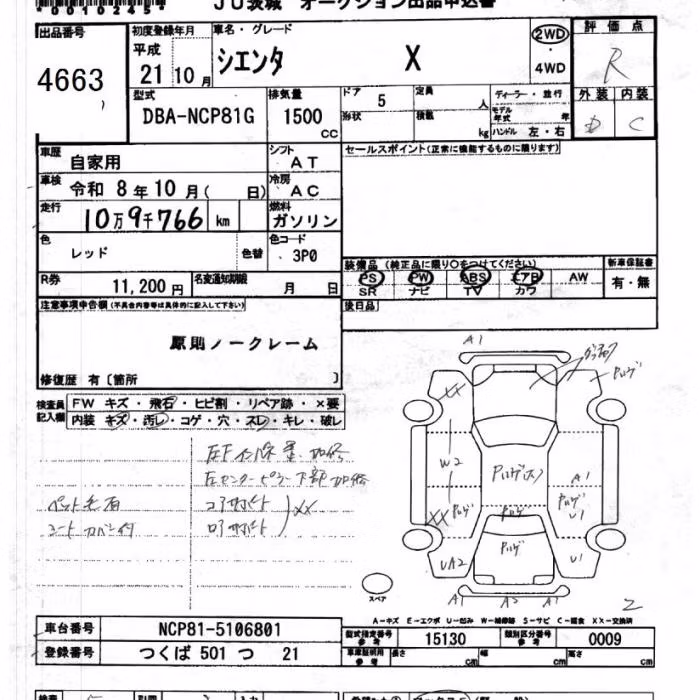 *0010245*
JU茨城 オークション出品申込書
出品番号 初度登録年月 車名・グレード 2WD・4WD 評価点
4663 平成21年10月 シエンタ X R
型式 排気量 ドア 定員 ディーラー・並行 外装 内装
DBA-NCP81G 1500cc 5 人 モデル年式 年 D C
形状 積載 kg ハンドル 左・右
車歴 自家用 シフト AT セールスポイント(正常に機能するものに限ります)
車検 令和 8年10月( 日) 冷房 AC
走行 10万9千766 km 燃料 ガソリン
色 レッド 色替 色コード 3P0
装備品(純正品に限り○をつけてください) 新車保証書
PS PW ABS エアB AW 有・無
SR ナビ TV カワ
R券 11,200円 名変通知期限 月 日
後日品
注意事項申告欄(不具合内容等は具体的に記入して下さい)
原則ノークレーム
修復歴 有〔箇所 〕
検査員記入欄 FW キズ・飛石・ヒビ割・リペア跡・×要
内装 キズ・汚レ・コゲ・穴・スレ・キレ・破レ
コアサポート
ペット毛有
シートカバー付
XX
A1
XX
W2
A1
U1
XX
UA2
U1
A1 A2 A1
スペア
2
A-キズ E-エクボ U-凹み W-補修跡 S-サビ C-腐食 XX-交換済
車台番号 NCP81-5106801 型式指定番号 参考 15130 類別区分番号 参考 0009
登録番号 つくば 501 つ 21 車庫証明用 参考 長さ cm 幅 cm 高さ cm